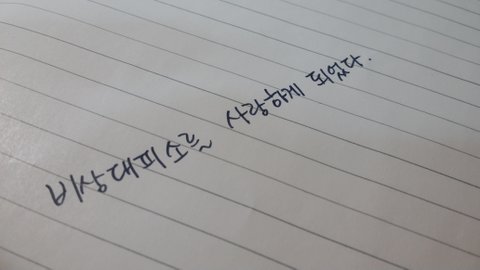 비상대피소를 사랑하게 되었다.